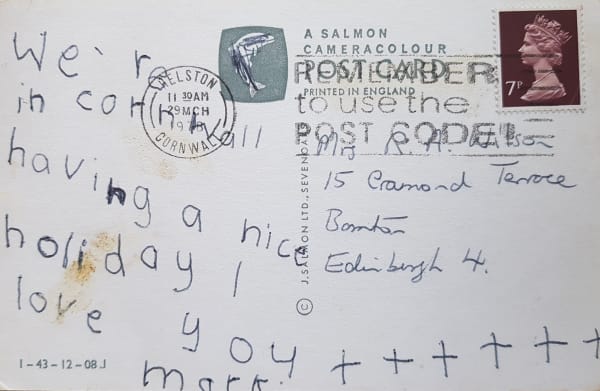 We'r
in cornwall
having a nice
holiday I
love you
mark.
+ + + + + + +
HELSTON
11 30 AM
29 MCH
CORNWALL
A SALMON
CAMERACOLOUR
POST CARD
PRINTED IN ENGLAND
REMEMBER
to use the
POST CODE!
7P
R. A.
15 Cramond Terrace
Edinburgh 4.
© J. SALMON LTD., SEVENOAKS
1-43-12-08J